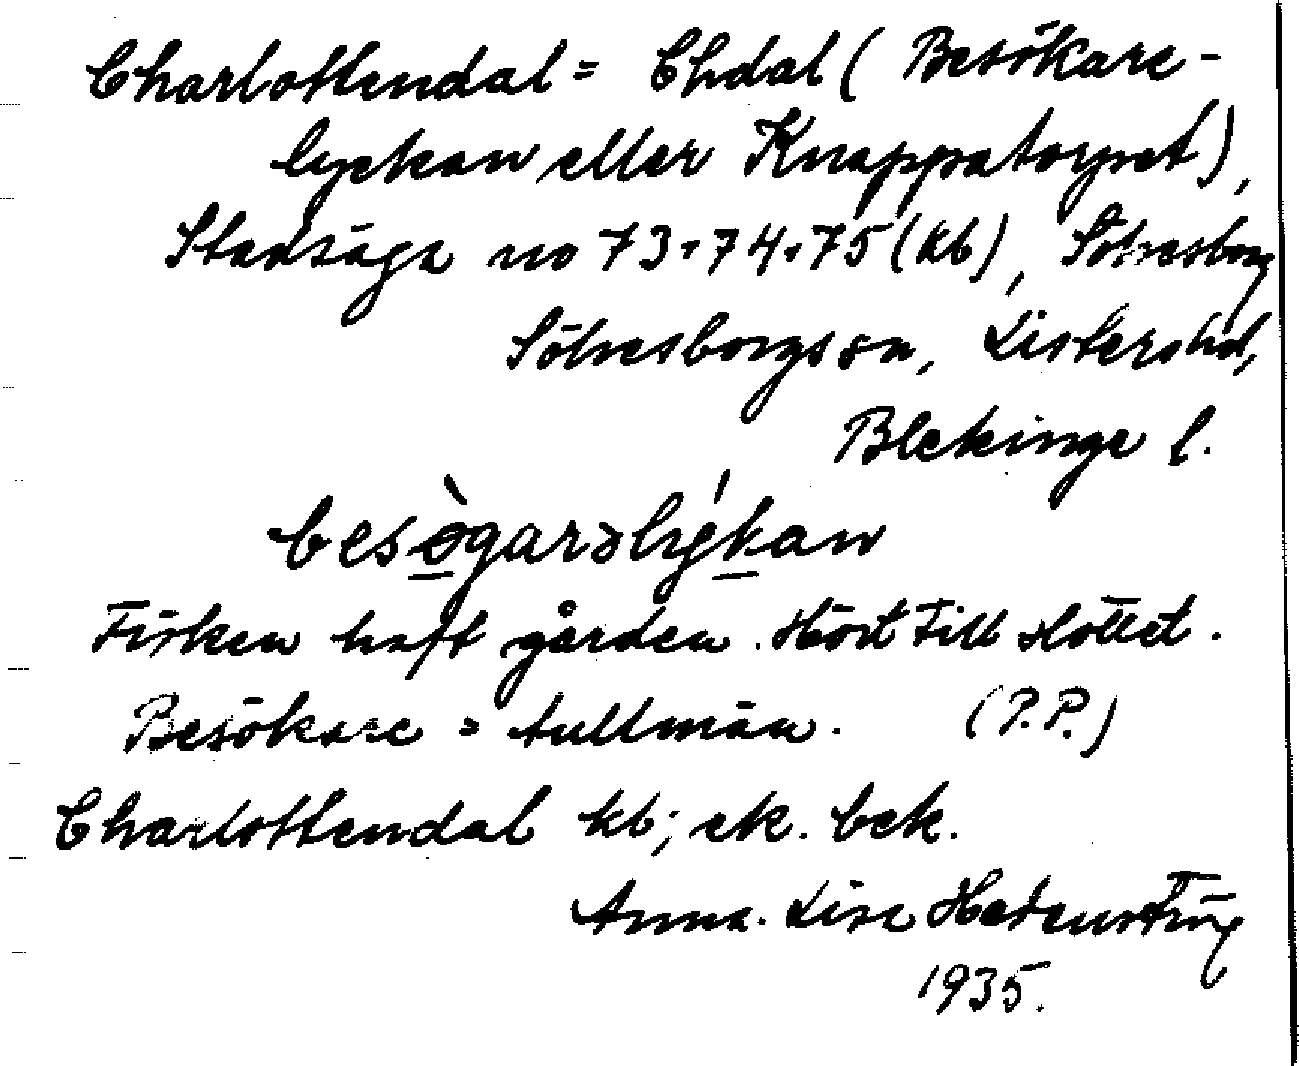 Charlottendal = Chdal (Besökare-
lyckan eller Knappatorpet),
Stadsäga no 73.74.75 (kb), Sölvesborg
Sölvesborgs sn, Listers hd,
Blekinge l.
besògarəlýkan
Fisken haft gården. Hört till slottet.
Besökare = tullmän. (P.P.)
Charlottendal kb; ek. bek.
Anna-Lisa
1935.